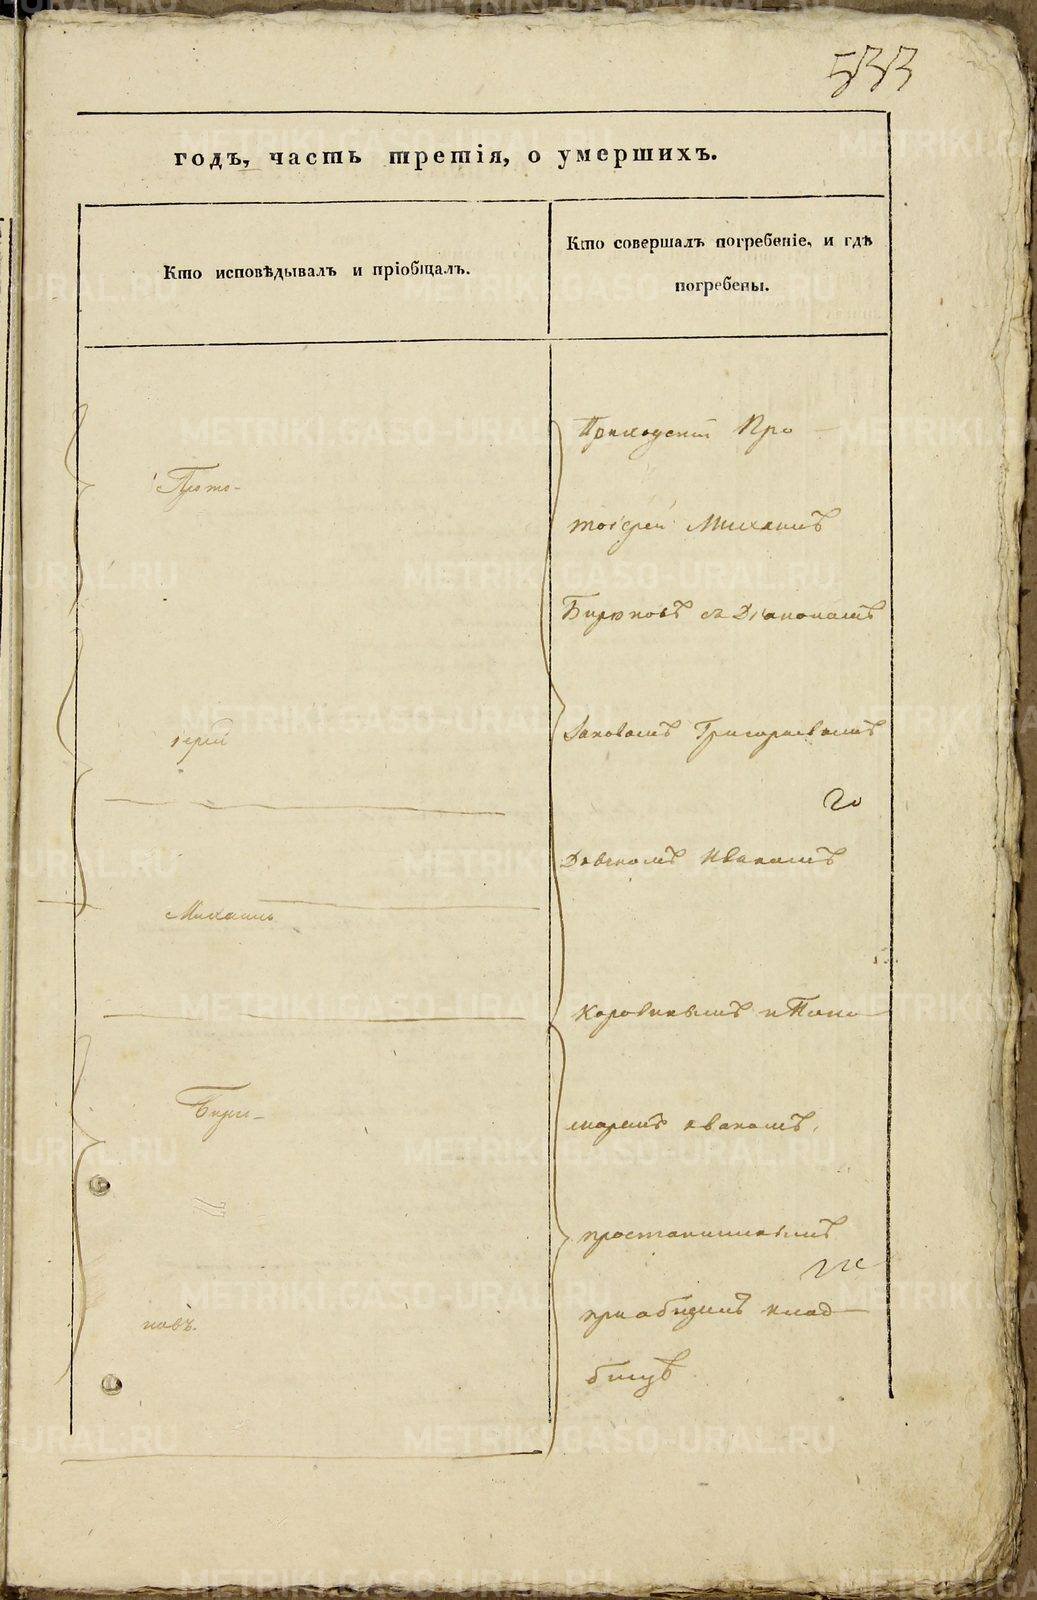 533
годъ, часть третія, о умершихъ.
Кто исповѣдывалъ и пріобщалъ.
Кто совершалъ погребеніе, и гдѣ
погребены.
Прото-
іерей
Михаилъ
Бирю-
ковъ.
Приходскій Про
тоіерей Михаилъ
Бирюковъ съ Діакономъ
Яковомъ Григорьевымъ
Дьячкомъ Иваномъ
Коровинымъ и Поно
маремъ Иваномъ
при общемъ клад
бищѣ
METRIKI.GASO-URAL.RU